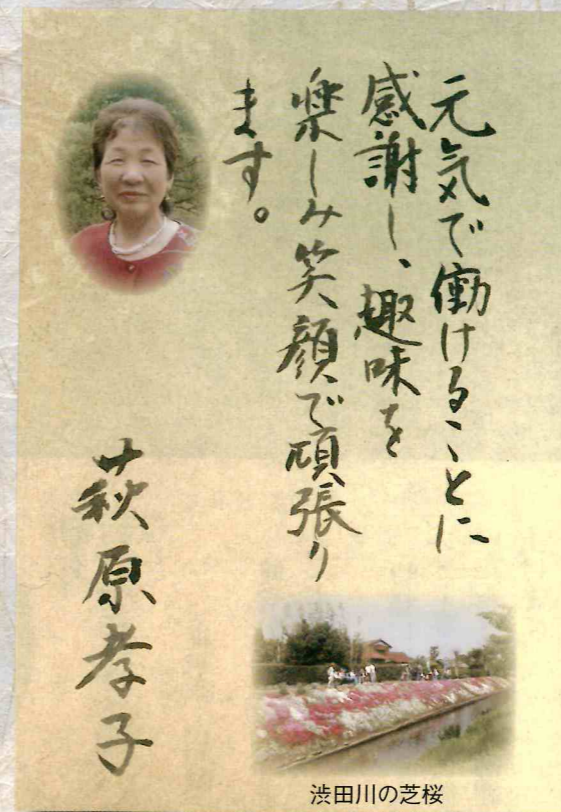 元気で働けることに
感謝し、趣味を
楽しみ笑顔で頑張り
ます。
萩原孝子
渋田川の芝桜